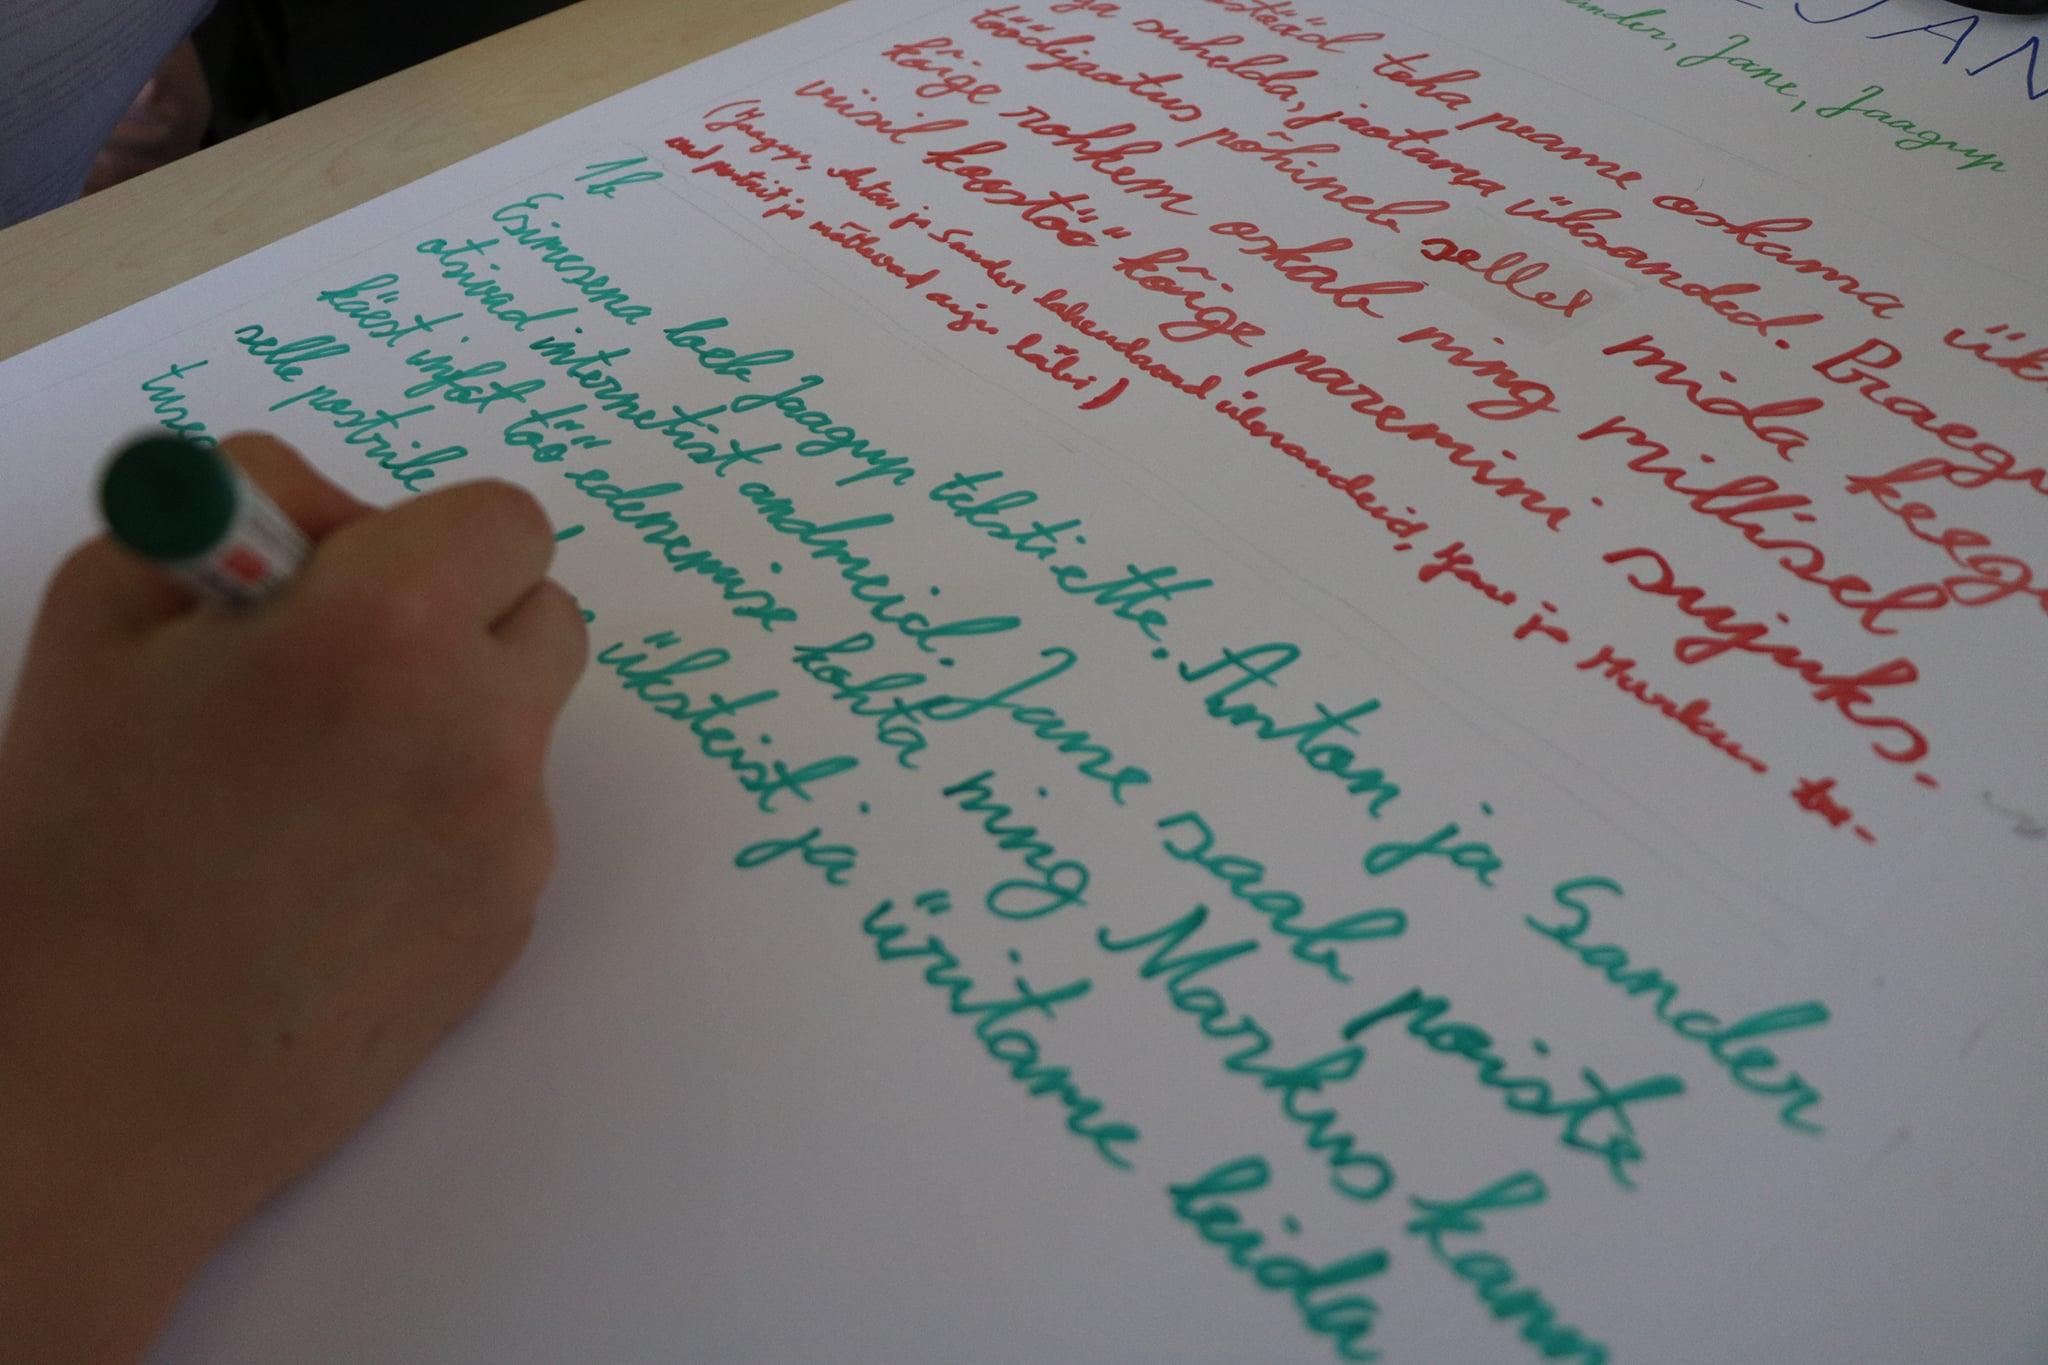 JAN
ander, Jane, Jaagup
teha peame oskama ük
ga suhelda, jaotama ülesanded. Praegu
töödejaotus põhineb sellel mida keegi
kõige rohkem oskab ning millisel
viisil koostöö kõige paremini sujuks.
(Jaagup, Anton ja Sander lahendavad ülesandeid, Jane ja Markus tee-
vad postrit ja mõtlevad asju läbi)
1b
Esimesena loeb Jaagup teksti ette. Anton ja Sander
otsivad internetist andmeid. Jane saab poiste
käest infot töö edenemise kohta ning Markus kann
selle postrile üksteist ja üritame leida